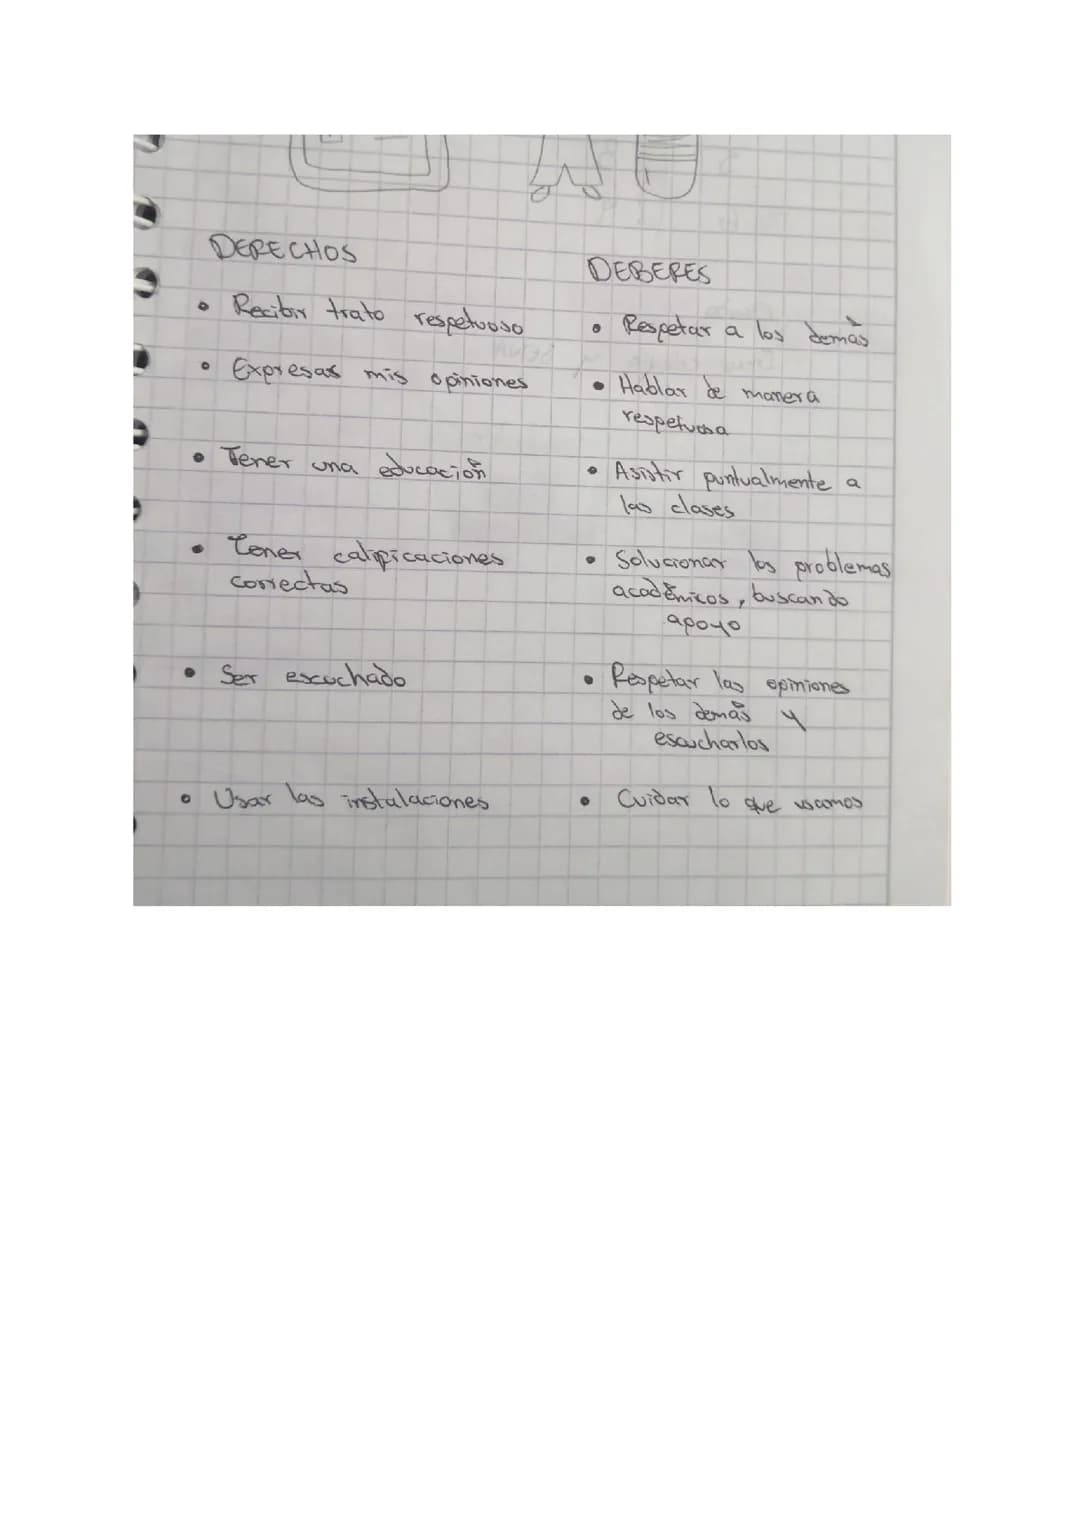 DERECHOS
• Recibir trato respetuoso
• Expresar mis opiniones
• Tener una educación
• Tener calificaciones
correctas
• Ser escuchado
• Usar las instalaciones
DEBERES
• Respetar a los demás
• Hablar de manera
respetuosa
• Asistir puntualmente a
las clases
• Solucionar los problemas
académicos, buscando
apoyo
• Respetar las opiniones
de los demás y
escucharlos
• Cuidar lo que usamos